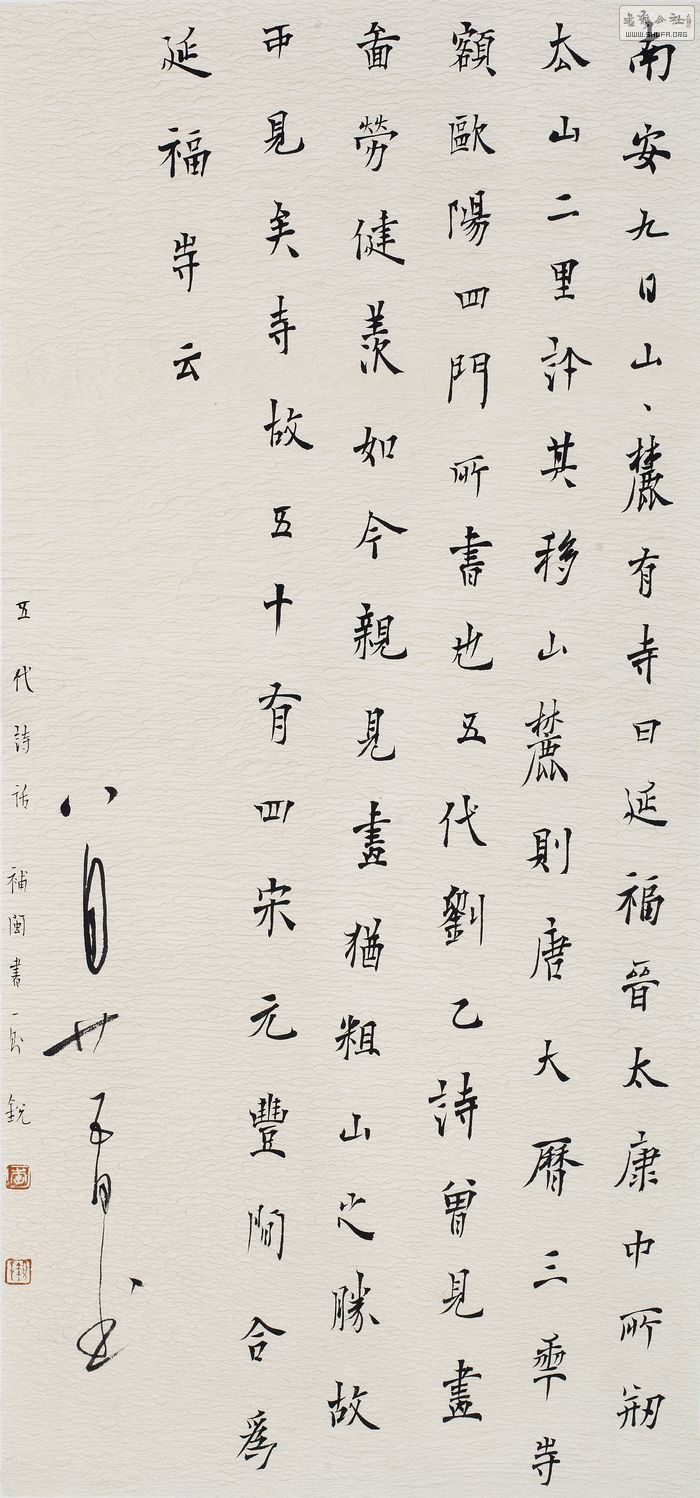 南安九日山、麓有寺曰延福晉太康中所剏
厺山二里許其移山麓則唐大曆三秊寺
額歐陽四門所書也五代劉乙詩曾見畫
啚勞健羨如今親見畫猶粗山之勝故
可見矣寺故五十有四宋元豐間合爲
延福寺云
八月廿
五代詩話 補閩書一則 銳
書法公社
WWW.SHUFA.ORG